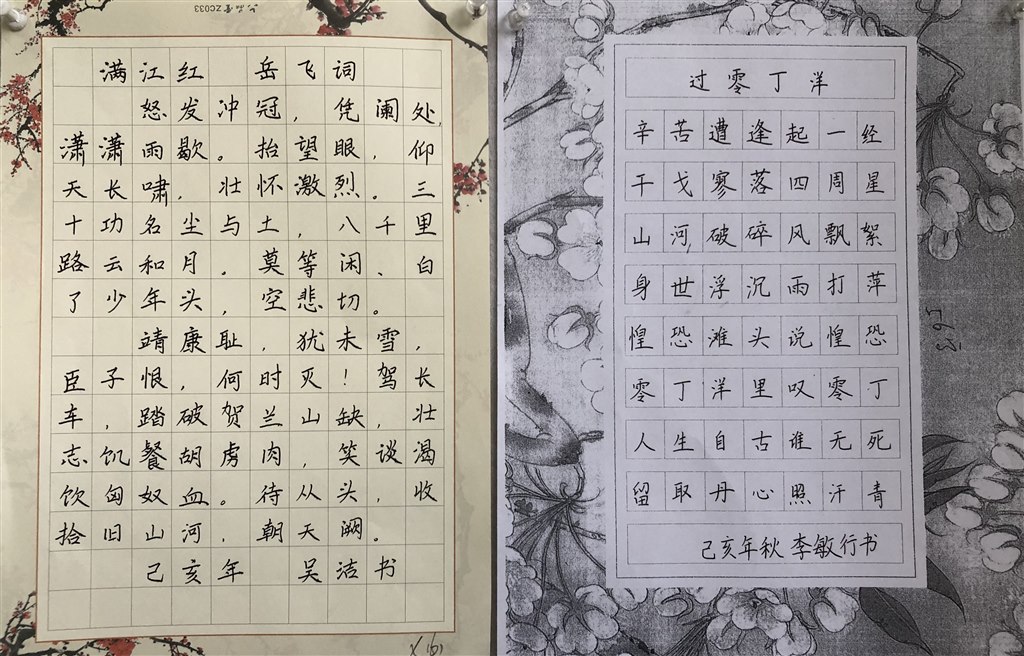 满江红 岳飞词
怒发冲冠，凭阑处，
潇潇雨歇。抬望眼，仰
天长啸，壮怀激烈。三
十功名尘与土，八千里
路云和月。莫等闲、白
了少年头，空悲切。
靖康耻，犹未雪，
臣子恨，何时灭！驾长
车，踏破贺兰山缺，壮
志饥餐胡虏肉，笑谈渴
饮匈奴血。待从头，收
拾旧山河，朝天阙。
己亥年 吴洁书
过零丁洋
辛苦遭逢起一经
干戈寥落四周星
山河破碎风飘絮
身世浮沉雨打萍
惶恐滩头说惶恐
零丁洋里叹零丁
人生自古谁无死
留取丹心照汗青
己亥年秋 李敏行书